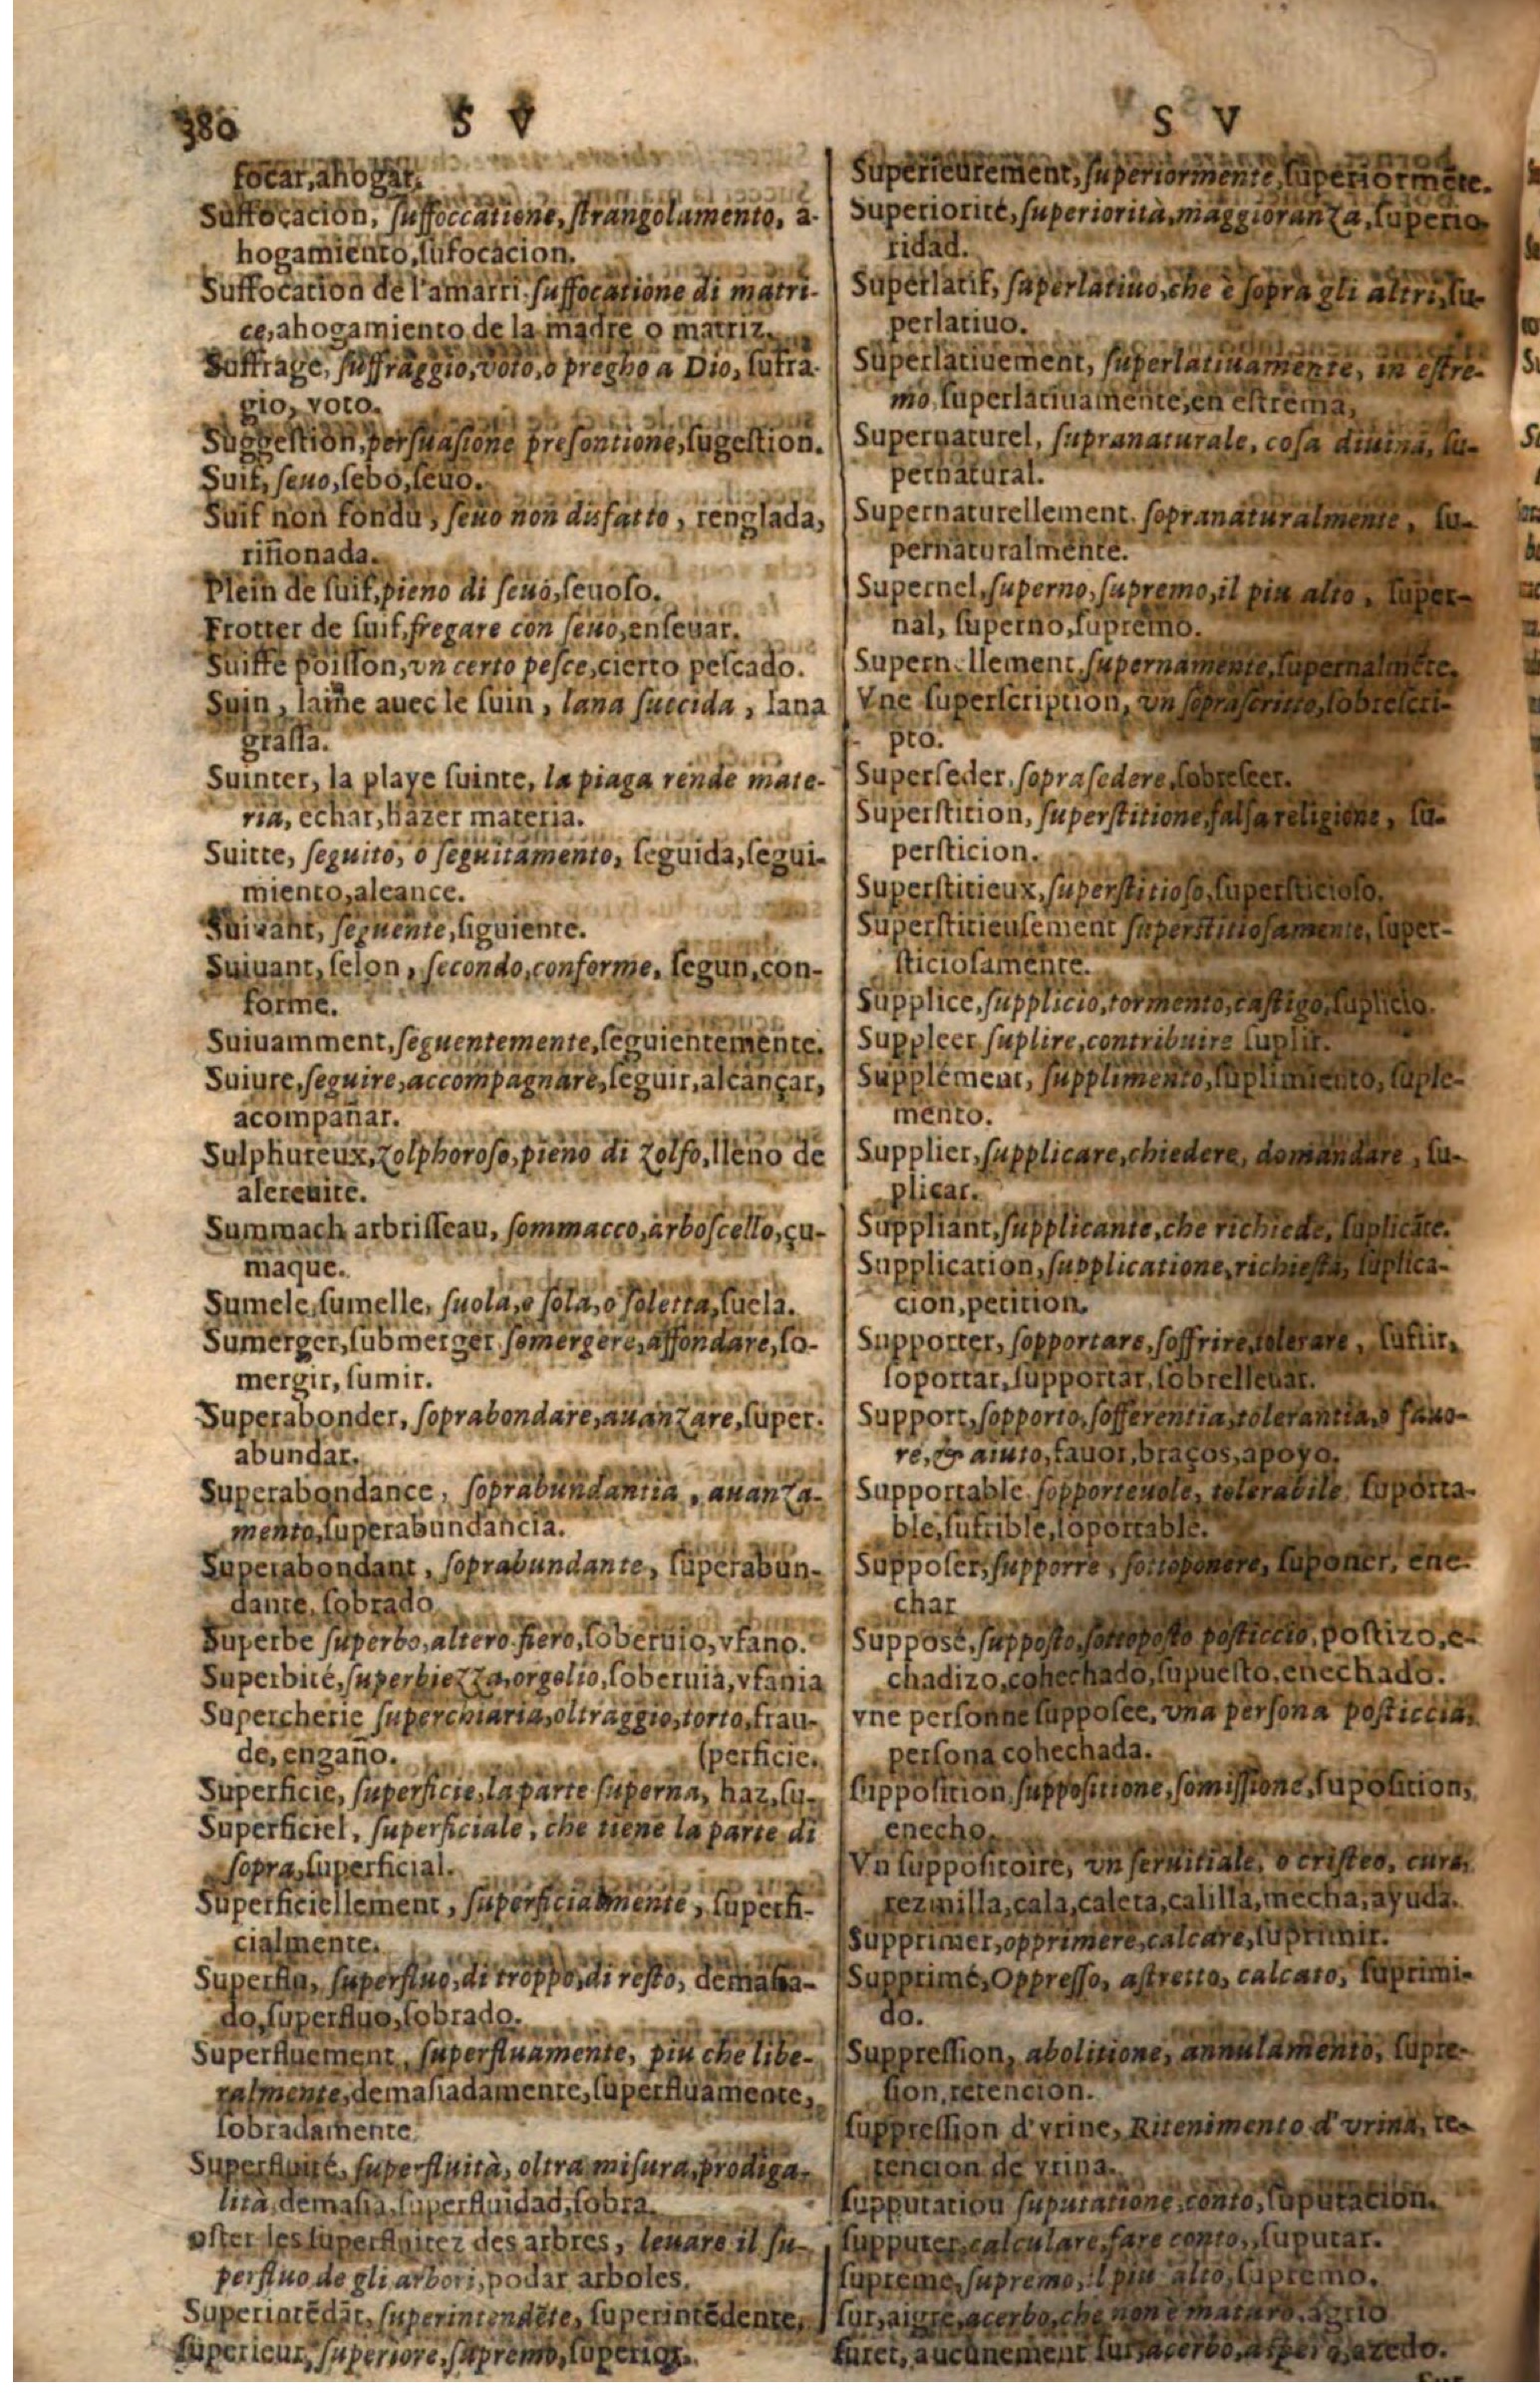 380 S V
focar,ahogar.
Suffocacion, ſuffoccatione,ſtrangolamento, a-
hogamiento,ſufocacion.
Suffocation de l'amarri ſuffocatione di matri-
ce,ahogamiento de la madre o matriz.
Suffrage, ſuffraggio,voto,o pregho a Dio, ſufra-
gio, voto.
Suggeſtion,perſuaſione preſontione,ſugeſtion.
Suif, ſeuo,ſebo,ſeuo.
Suif non fondu, ſeuo non disfatto, renglada,
riñonada.
Plein de ſuif,pieno di ſeuo,ſeuoſo.
Frotter de ſuif,fregare con ſeuo,enſeuar.
Suiffe poiſſon,vn certo peſce,cierto peſcado.
Suin, laine auec le ſuin, lana ſuccida, lana
graſſa.
Suinter, la playe ſuinte, la piaga rende mate-
ria, echar,hazer materia.
Suitte, ſeguito, o ſeguitamento, ſeguida,ſegui-
miento,alcance.
Suivant, ſeguente,ſiguiente.
Suiuant, ſelon, ſecondo,conforme, ſegun,con-
forme.
Suiuamment,ſeguentemente,ſeguientemente.
Suiure,ſeguire,accompagnare,ſeguir,alcançar,
acompañar.
Sulphureux,zolphoroſo,pieno di zolfo,lleno de
alcreuite.
Summach arbriſſeau, ſommacco,arboſcello,çu-
maque.
Sumele,ſumelle, ſuola,o ſola,o ſoletta,ſuela.
Sumerger,ſubmerger ſomergere,affondare,ſo-
mergir, ſumir.
Superabonder, ſoprabondare,auanzare,ſuper-
abundar.
Superabondance, ſoprabundantia, auanza-
mento,ſuperabundancia.
Superabondant, ſoprabundante, ſuperabun-
dante, ſobrado
Superbe ſuperbo,altero fiero,ſoberuio,vfano.
Superbité,ſuperbiezza,orgolio,ſoberuia,vfania
Supercherie ſuperchiaria,oltraggio,torto,frau-
de,engaño. (perficie.
Superficie, ſuperficie,la parte ſuperna, haz,ſu-
Superficiel, ſuperficiale, che tiene la parte di
ſopra,ſuperficial.
Superficiellement, ſuperficialmente, ſuperfi-
cialmente.
Superflu, ſuperfluo,di troppo,di reſto, demaſia-
do,ſuperfluo,ſobrado.
Superfluement, ſuperfluamente, piu che libe-
ralmente,demaſiadamente,ſuperfluamente,
ſobradamente
Superfluité, ſuperfluità, oltra miſura,prodiga-
lità demaſia,ſuperfluidad,ſobra.
oſter les ſuperfluitez des arbres, leuare il ſu-
perfluo de gli arbori,podar arboles.
Superintēdāt, ſuperintendēte, ſuperintēdente,
ſuperieur, ſuperiore,ſupremo,ſuperior.
S V
Superieurement,ſuperiormente,ſuperiormēte.
Superiorité,ſuperiorità,maggioranza,ſuperio-
ridad.
Superlatif, ſuperlatiuo,che è ſopra gli altri,ſu-
perlatiuo.
Superlatiuement, ſuperlatiuamente, in eſtre-
mo,ſuperlatiuamente,en eſtrema,
Supernaturel, ſupranaturale, coſa diuina, ſu-
pernatural.
Supernaturellement. ſopranaturalmente, ſu-
pernaturalmente.
Supernel,ſuperno,ſupremo,il piu alto, ſuper-
nal, ſuperno,ſupremo.
Supernellement,ſupernamente,ſupernalmēte.
Vne ſuperſcription, vn ſopraſcritto,ſobreſcri-
pto.
Superſeder,ſopraſedere,ſobreſeer.
Superſtition, ſuperſtitione,falſa religione, ſu-
perſticion.
Superſtitieux,ſuperſtitioſo,ſuperſticioſo.
Superſtitieuſement ſuperſtitioſamente, ſuper-
ſticioſamente.
Supplice,ſupplicio,tormento,caſtigo,ſuplicio.
Suppleer ſuplire,contribuire ſuplir.
Supplement, ſupplimento,ſuplimiento, ſuple-
mento.
Supplier,ſupplicare,chiedere, domandare, ſu-
plicar.
Suppliant,ſupplicante,che richiede, ſuplicāte.
Supplication,ſupplicatione,richieſta, ſuplica-
cion,peticion.
Supporter, ſopportare,ſoffrire,tolerare, ſufrir,
ſoportar,ſupportar,ſobrelleuar.
Support,ſopporto,ſofferentia,tolerantia,o fauo-
re,& aiuto,fauor,braços,apoyo.
Supportable ſopporteuole, tolerabile, ſuporta-
ble,ſufrible,ſoportable.
Suppoſer,ſupporre, ſottoponere, ſuponer, ene-
char
Suppoſé,ſuppoſto,ſottopoſto poſticcio,poſtizo,e-
chadizo,cohechado,ſupueſto,enechado.
vne perſonne ſuppoſee, vna perſona poſticcia,
perſona cohechada.
ſuppoſition ſuppoſitione,ſomiſſione,ſupoſicion,
enecho.
Vn ſuppoſitoire, vn ſeruitiale, o criſteo, cura,
rezmilla,cala,caleta,calilla,mecha,ayuda.
Supprimer,opprimere,calcare,ſuprimir.
Supprimé,Oppreſſo, aſtretto, calcato, ſuprimi-
do.
Suppreſſion, abolitione, annulamento, ſupre-
ſion,retencion.
ſuppreſſion d'vrine, Ritenimento d'vrina, re-
tencion de vrina.
ſupputation ſuputatione,conto,ſuputacion.
ſupputer,calculare,fare conto,,ſuputar.
ſupreme,ſupremo,il piu alto,ſupremo.
ſur,aigre,acerbo,che non è maturo,agrio
ſuret, aucunement ſur,acerbo,aſpero,azedo.
Sur